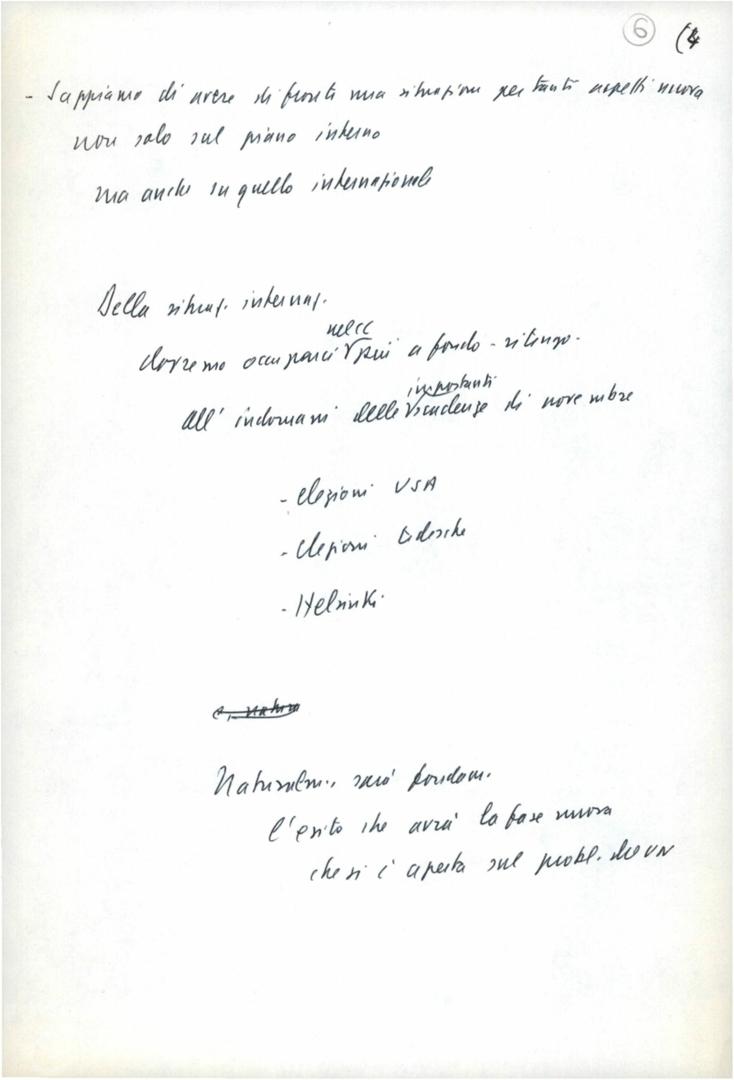 6 (4
- Sappiamo di avere di fronte una situazione per tanti aspetti nuova
non solo sul piano interno
ma anche su quello internazionale
Della situaz. internaz.
dovremo occuparci nel CC più a fondo - ritengo -
all'indomani delle importanti scadenze di novembre
- elezioni USA
- elezioni tedesche
- Helsinki
Naturalm., sarà fondam.
l'esito che avrà la fase nuova
che si è aperta sul probl. del VN